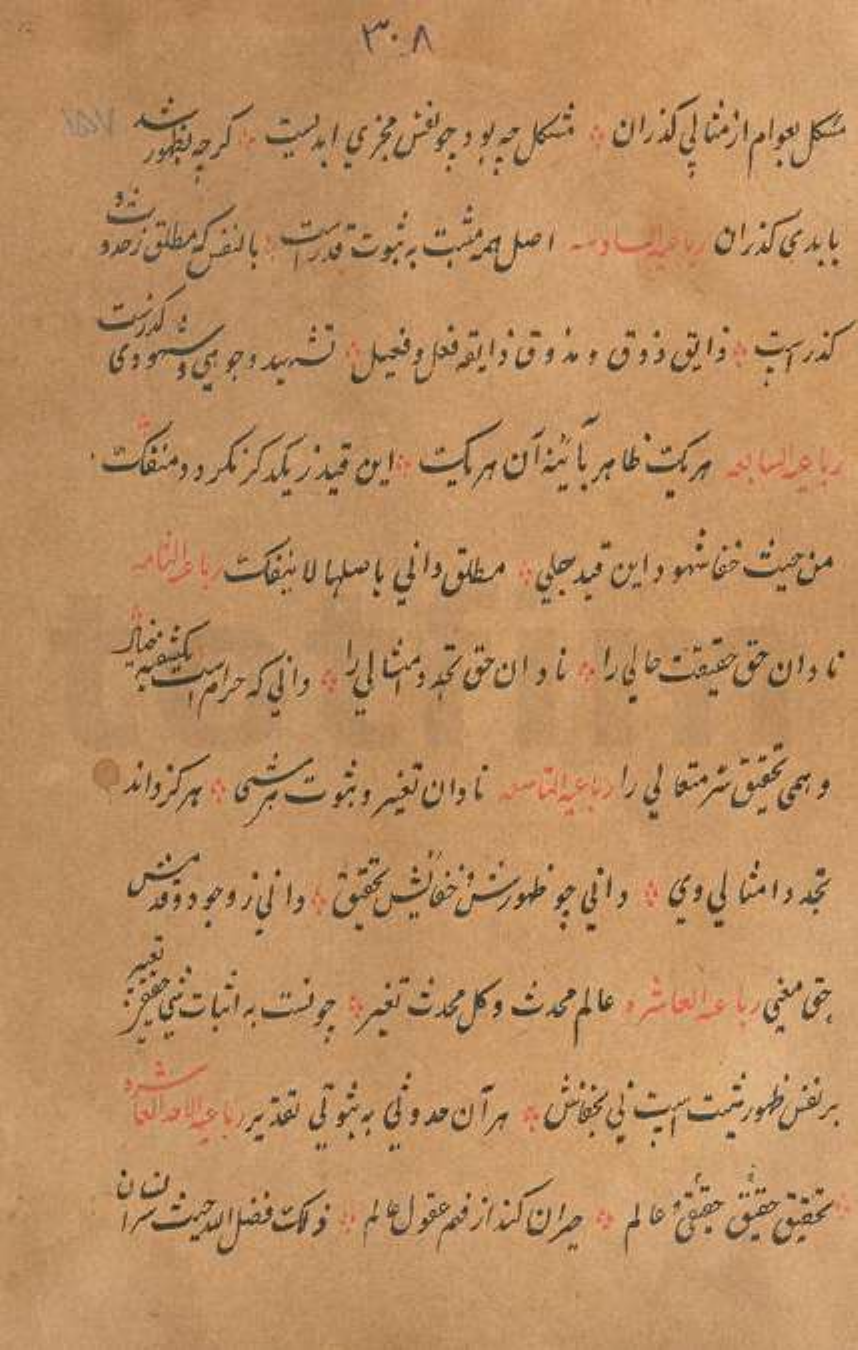 ٣٠٨
مشکل بعوام از مثالی کذران ⁘ مشکل چه بود چو نفس مجزی ابدیست ⁘ کرچه بظهور شد
یا بدی کذران رباعیه السادسه اصل همه مثبت به ثبوت قدرست ⁘ بالنفس که مطلق ز حد و
کذر است ⁘ ذایق ذوق و مذوق ذایقه فعل و فعیل ⁘ تشهید وجوبی و شهودی
رباعیه السابعه هریکت ظاهر بآئینهٔ آن هریکت ⁘ این قید ز یکدکر نکردد منفکت
من حیث خفا شهود این قید جلی ⁘ مطلق دانی باصلها لا ینفکت رباعیه الثامنه
نادان حق حقیقت حالی را ⁘ نادان حق تجدد امثالی را ⁘ دانی که حرام است
وهمی تحقیق سر متعالی را رباعیه التاسعه نادان تغیر و ثبوت هر شی ⁘ هرکز داند
تجدد امثالی وی ⁘ دانی چو ظهورش ز خفائیش تحقیق ⁘ دانی ز وجود و قدمش
حق مغیی رباعیه العاشره عالم محدث و کل محدث تغیر ⁘ چونست به اثبات نفی
بر نفس ظهور نیست است نی بخفاش ⁘ هر آن حدوثی به ثبوتی تقدیر رباعیه الاحد العاشره
تحقیق حقیق حقیقیٔ عالم ⁘ حیران کند از فهم عقول عالم ⁘ ذلکت فضل الله حیث